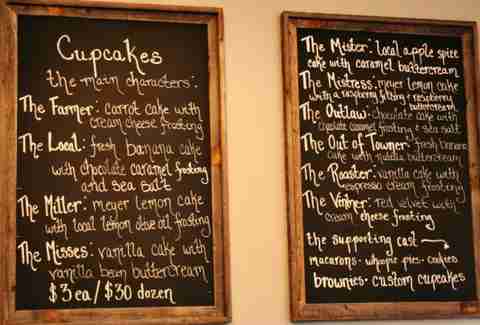 Cupcakes
the main characters:
The Farmer: carrot cake with
cream cheese frosting
The Local: fresh banana cake
with chocolate caramel frosting
and sea salt
The Miller: meyer lemon cake
with local lemon olive oil frosting
The Misses: vanilla cake with
vanilla bean buttercream
$3 ea/$30 dozen
The Mister: local apple spice
cake with caramel buttercream
The Mistress: meyer lemon cake
with a raspberry filling + raspberry
buttercream
The Outlaw: chocolate cake with
chocolate caramel frosting & sea salt
The Out of Towner: fresh banana
cake with nutella buttercream
The Roaster: vanilla cake with
espresso cream frosting
The Vintner: red velvet with
cream cheese frosting
the supporting cast →
macarons · whoopie pies · cookies
brownies · custom cupcakes